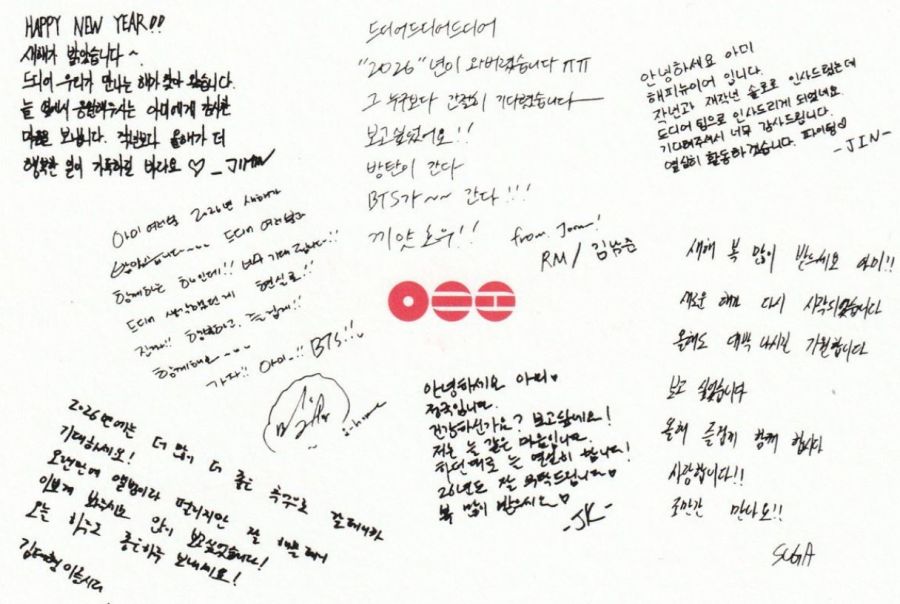 HAPPY NEW YEAR!!
새해가 밝았습니다~
드디어 우리가 만나는 해가 찾아 왔습니다.
늘 옆에서 응원해주시는 아미에게 감사한
마음을 보냅니다. 작년보다 올해가 더
행복한 일이 가득하길 바라요 ♡ _JIMIN
드디어드디어드디어
"2026"년이 와버렸습니다 ㅠㅠ
그 누구보다 간절히 기다렸습니다
보고싶었어요!!
방탄이 간다
BTS가~~ 간다!!!
끼얏호우!!
from. Joon!
RM / 김남준
안녕하세요 아미
해피뉴이어 입니다.
작년과 재작년 솔로로 인사드렸는데
드디어 팀으로 인사드리게 되었네요
기다려주셔서 너무 감사드립니다.
열심히 활동하겠습니다. 파이팅♡
-JIN-
아미 여러분 2026년 새해가
밝았습니다~~~ 드디어 여러분과
함께하는 해인데!! 너무 기대됩니다!!
드디어 생각했던게 현실로!!
진짜!! 행복하고, 즐겁게!!
함께해요~~~
가자!! 아미..!! BTS!!
새해 복 많이 받으세요 아미!!
새로운 해가 다시 시작되었습니다
올해도 대박 나시길 기원합니다
보고 싶었습니다
올해 즐겁게 함께 합시다
사랑합니다!!
조만간 만나요!!
SUGA
안녕하세요 아미♡
정국입니다.
건강하신가요? 보고싶네요!
저는 늘 같은 마음입니다.
하던대로 늘 열심히 합니다!
26년도 잘 부탁드립니다♡
복 많이 받으시오♡
-JK-
2026년에는 더 많이 더 좋은 추억으로 갈테니까
기대하세요!
오랜만에 앨범이라 떨리지만 잘 해볼테니
이쁘게 봐주시요 많이 보고싶었습니다!
오늘 하루도 좋은하루 보내세요!
김태형 이올시다